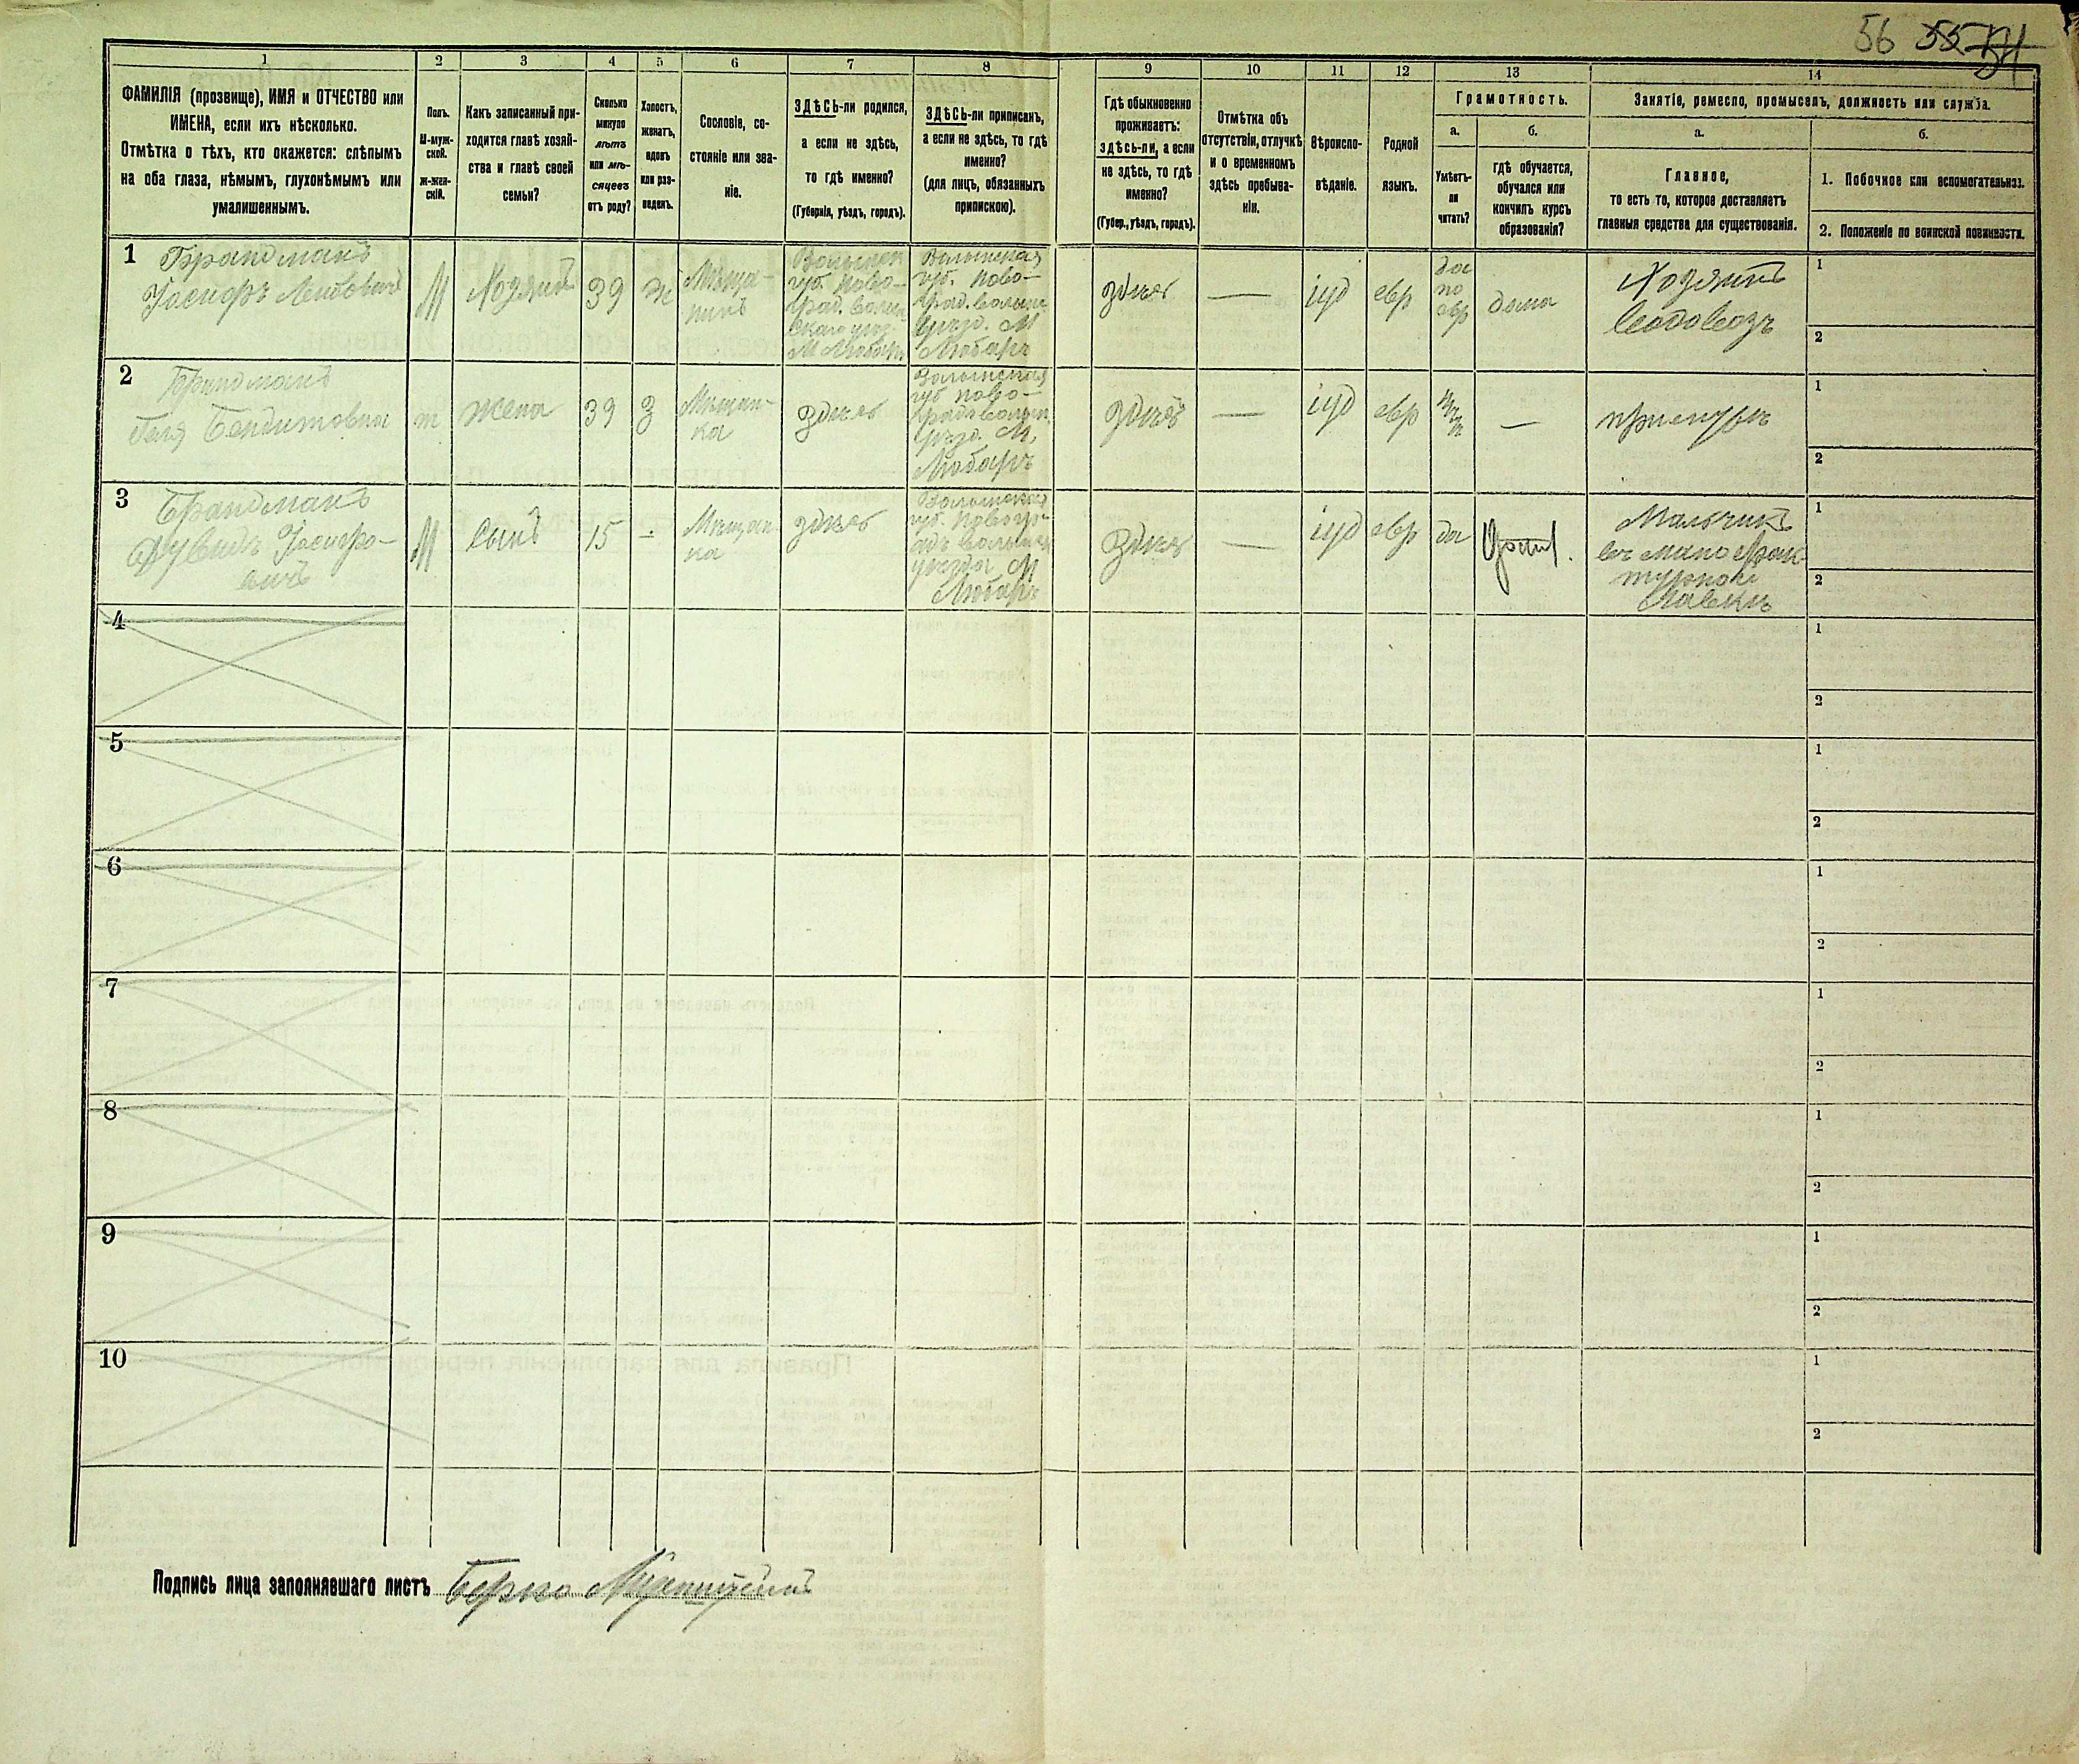 56 55 54
1 2 3 4 5 6 7 8 9 10 11 12 13 14
ФАМИЛІЯ (прозвище), ИМЯ и ОТЧЕСТВО или
ИМЕНА, если ихъ нѣсколько.
Отмѣтка о тѣхъ, кто окажется: слѣпымъ
на оба глаза, нѣмымъ, глухонѣмымъ или
умалишеннымъ.
Полъ.
М-муж-
ской.
Ж-жен-
скій.
Какъ записанный при-
ходится главѣ хозяй-
ства и главѣ своей
семьи?
Сколько
минуло
лѣтъ
или мѣ-
сяцевъ
отъ роду?
Холостъ,
женатъ,
вдовъ
или раз-
веденъ.
Сословіе, со-
стояніе или зва-
ніе.
ЗДѢСЬ-ли родился,
а если не здѣсь,
то гдѣ именно?
(Губернія, уѣздъ, городъ).
ЗДѢСЬ-ли приписанъ,
а если не здѣсь, то гдѣ
именно?
(для лицъ, обязанныхъ
припискою).
Гдѣ обыкновенно
проживаетъ:
здѣсь-ли, а если
не здѣсь, то гдѣ
именно?
(Губер., уѣздъ, городъ).
Отмѣтка объ
отсутствіи, отлучкѣ
и о временномъ
здѣсь пребыва-
ніи.
Вѣроиспо-
вѣданіе.
Родной
языкъ.
Грамотность.
а.
Умѣетъ-
ли
читать?
б.
гдѣ обучается,
обучался или
кончилъ курсъ
образованія?
Занятіе, ремесло, промыселъ, должность или служба.
а.
Главное,
то есть то, которое доставляетъ
главныя средства для существованія.
б.
1. Побочное или вспомогательное.
2. Положеніе по воинской повинности.
1
Брандманъ
Іосифъ Лейбовичъ
М
Хозяинъ
39
ж
Мѣща-
нинъ
Волынск
губ. Ново-
град. Волын
скаго уѣз.
М Любаръ
Волынская
губ. Ново-
град. Волын
уѣзд. М
Любаръ
здѣсь
—
іуд
евр
да
по
евр
дома
Хозяинъ
водовозъ
1
2
2
Брандманъ
Бендитовна
ж
жена
39
З
Мѣщан-
ка
здѣсь
Волынская
губ Ново-
градволын
уѣзд. М.
Любаръ
здѣсь
—
іуд
евр
нѣт
—
при мужѣ
1
2
3
Брандманъ
Дувидъ Іосифо-
вичъ
М
Сынъ
15
-
Мѣщан
ка
здѣсь
Волынская
губ. Новогр-
адъ волынск
уѣзда М
Любаръ
здѣсь
—
іуд
евр
да
Мальчикъ
въ мануфак-
турной
Лавкѣ
1
2
4
1
2
5
1
2
6
1
2
7
1
2
8
1
2
9
1
2
10
1
2
Подпись лица заполнявшаго листъ Берко